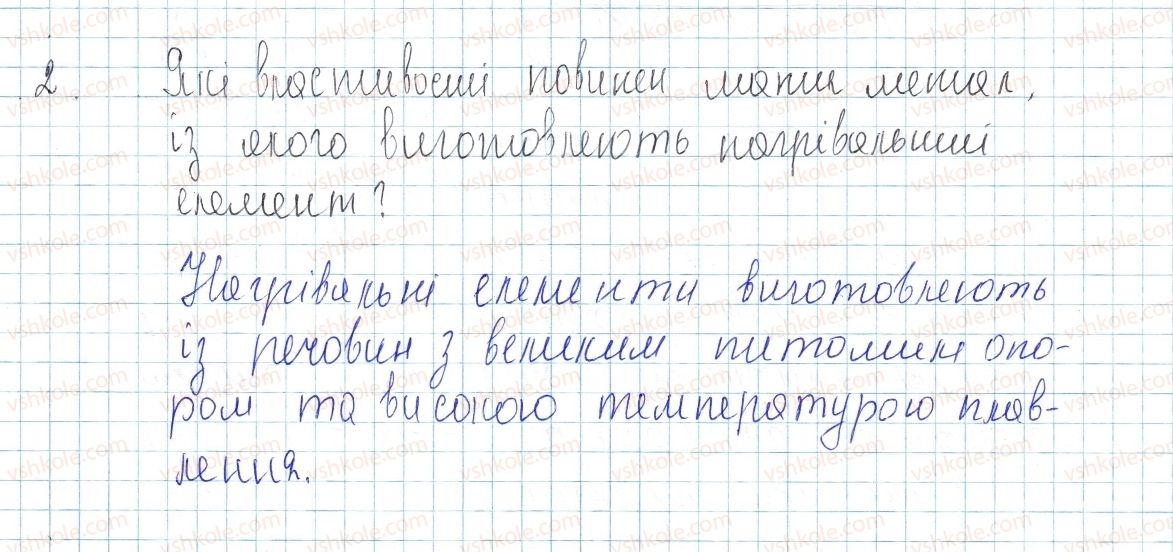 2. Які властивості повинен мати метал,
із якого виготовлюють нагрівальний
елемент?
Нагрівальні елементи виготовлюють
із речовин з великим питомим опо-
ром та високою температурою плав-
лення.